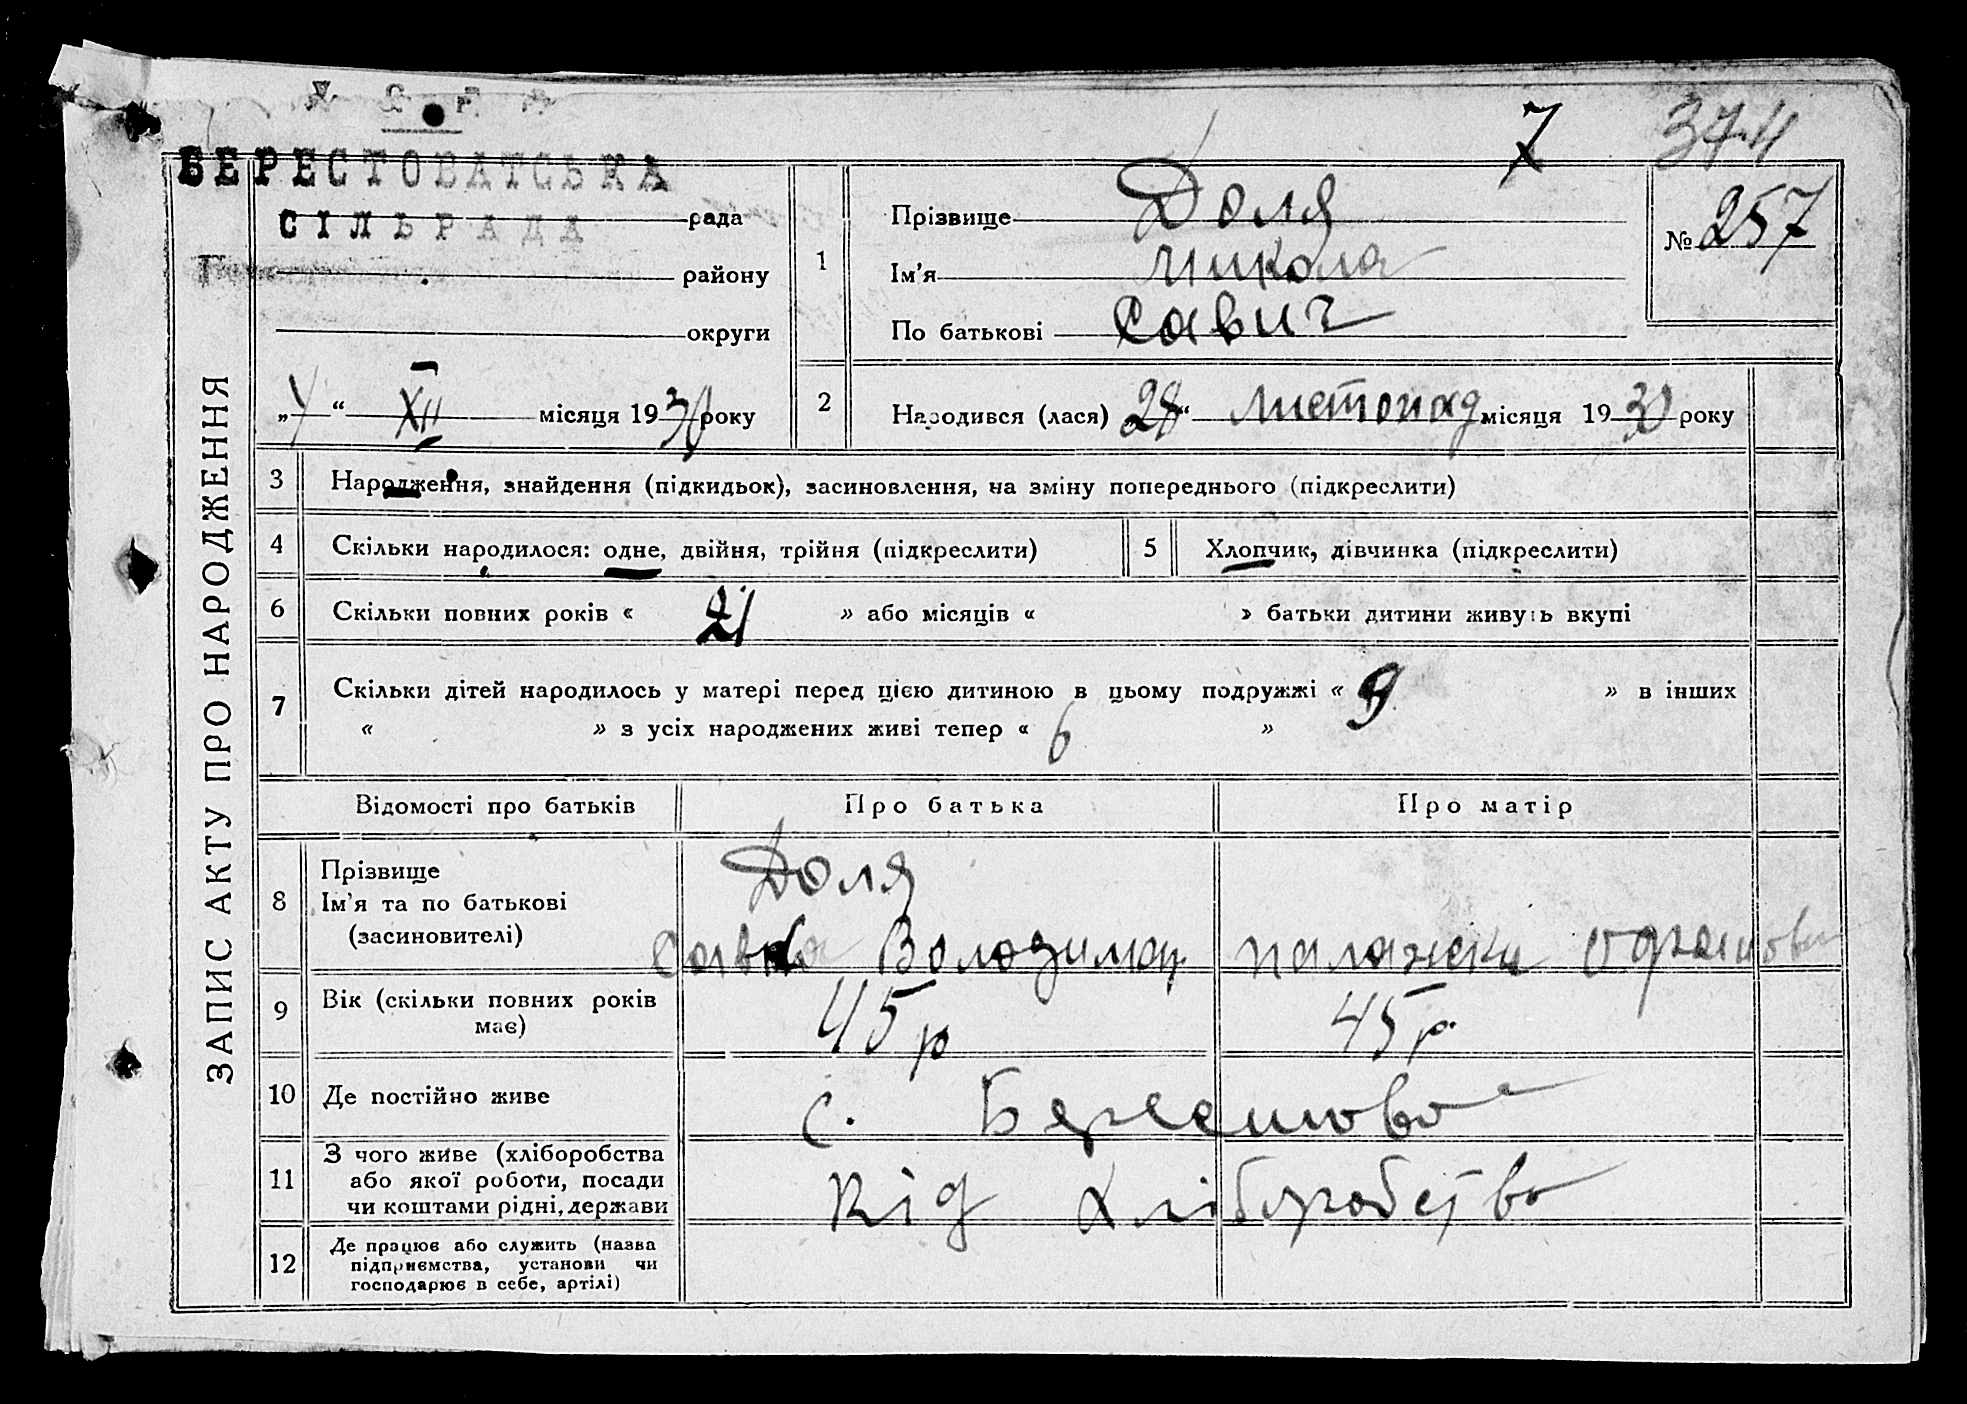 У С Р Р
7 374
БЕРЕСТОВАТСЬКА
СІЛЬРАДА рада
району
округи
„4“ XII місяця 1930 року
1
Прізвище Доля
Ім'я Микола
По батькові Савич
№ 257
2 Народився (лася) „28“ листопад місяця 1930 року
ЗАПИС АКТУ ПРО НАРОДЖЕННЯ
3 Народження, знайдення (підкидьок), засиновлення, на зміну попереднього (підкреслити)
4 Скільки народилося: одне, двійня, трійня (підкреслити) 5 Хлопчик, дівчинка (підкреслити)
6 Скільки повних років « 21 » або місяців « » батьки дитини живуть вкупі
7 Скільки дітей народилось у матері перед цією дитиною в цьому подружжі « 9 » в інших
« » з усіх народжених живі тепер « 6 »
Відомості про батьків Про батька Про матір
8 Прізвище
Ім'я та по батькові
(засиновителі)
Доля
Савка Володимир Палажка
9 Вік (скільки повних років
має)
45 р 45 р.
10 Де постійно живе с. Берестова
11 З чого живе (хліборобства
або якої роботи, посади
чи коштами рідні, держави
Від хліборобства
12 Де працює або служить (назва
підприємства, установи чи
господарює в себе, артілі)